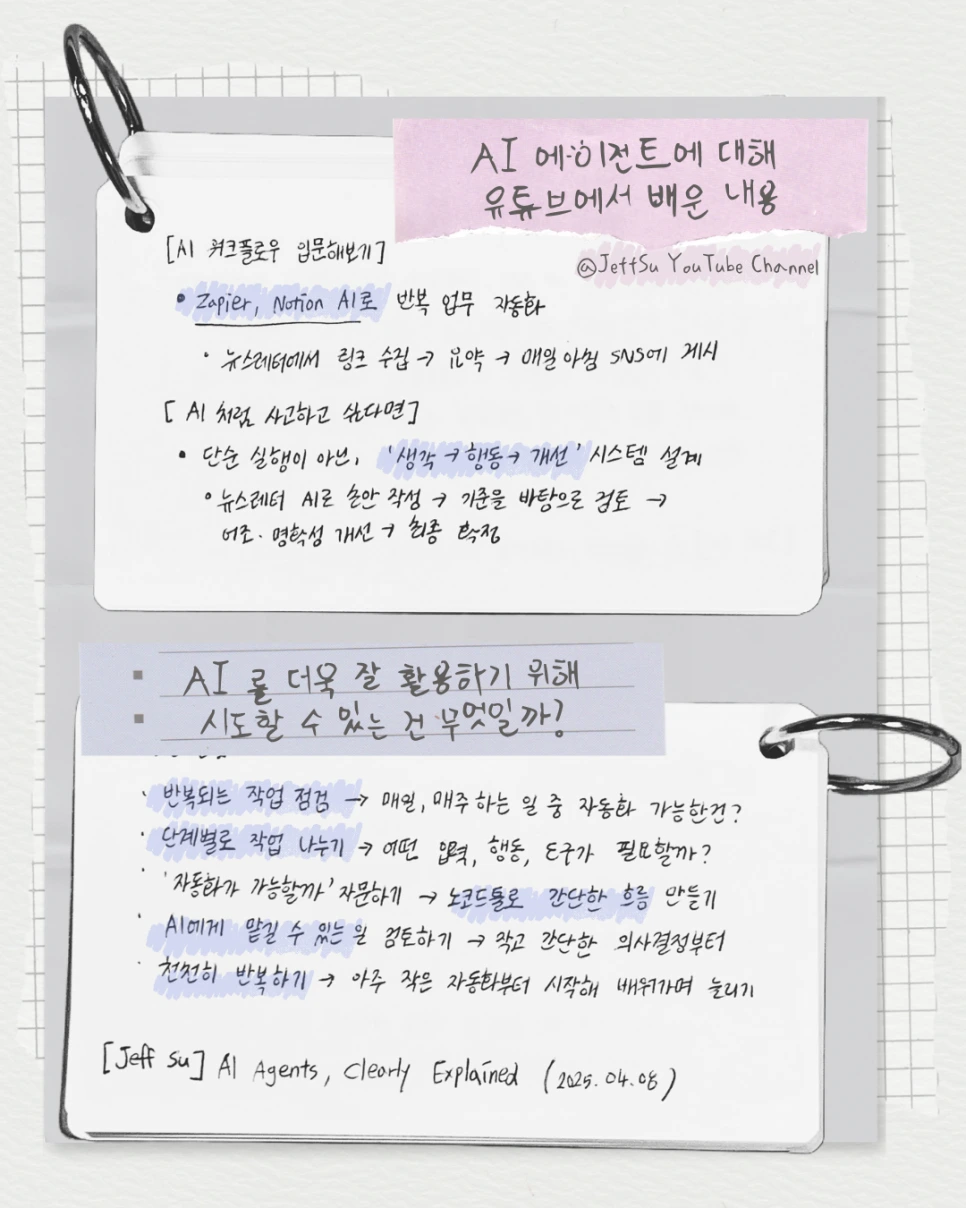 AI 에이전트에 대해
유튜브에서 배운 내용
@JeffSu YouTube Channel
[AI 워크플로우 입문해보기]
• Zapier, Notion AI로 반복 업무 자동화
• 뉴스레터에서 링크 수집 → 요약 → 매일 아침 SNS에 게시
[ AI 처럼 사고하고 싶다면]
• 단순 실행이 아닌, '생각 → 행동 → 개선' 시스템 설계
• 뉴스레터 AI로 초안 작성 → 기준을 바탕으로 검토 →
어조·명확성 개선 → 최종 확정
▪ AI를 더욱 잘 활용하기 위해
▪ 시도할 수 있는 건 무엇일까?
· 반복되는 작업 점검 → 매일, 매주 하는 일 중 자동화 가능한건?
· 단계별로 작업 나누기 → 어떤 입력, 행동, 도구가 필요할까?
· '자동화가 가능할까' 자문하기 → 노코드툴로 간단한 흐름 만들기
· AI에게 맡길 수 있는 일 검토하기 → 작고 간단한 의사결정부터
· 천천히 반복하기 → 아주 작은 자동화부터 시작해 배워가며 늘리기
[Jeff Su] AI Agents, Clearly Explained (2025.04.08)